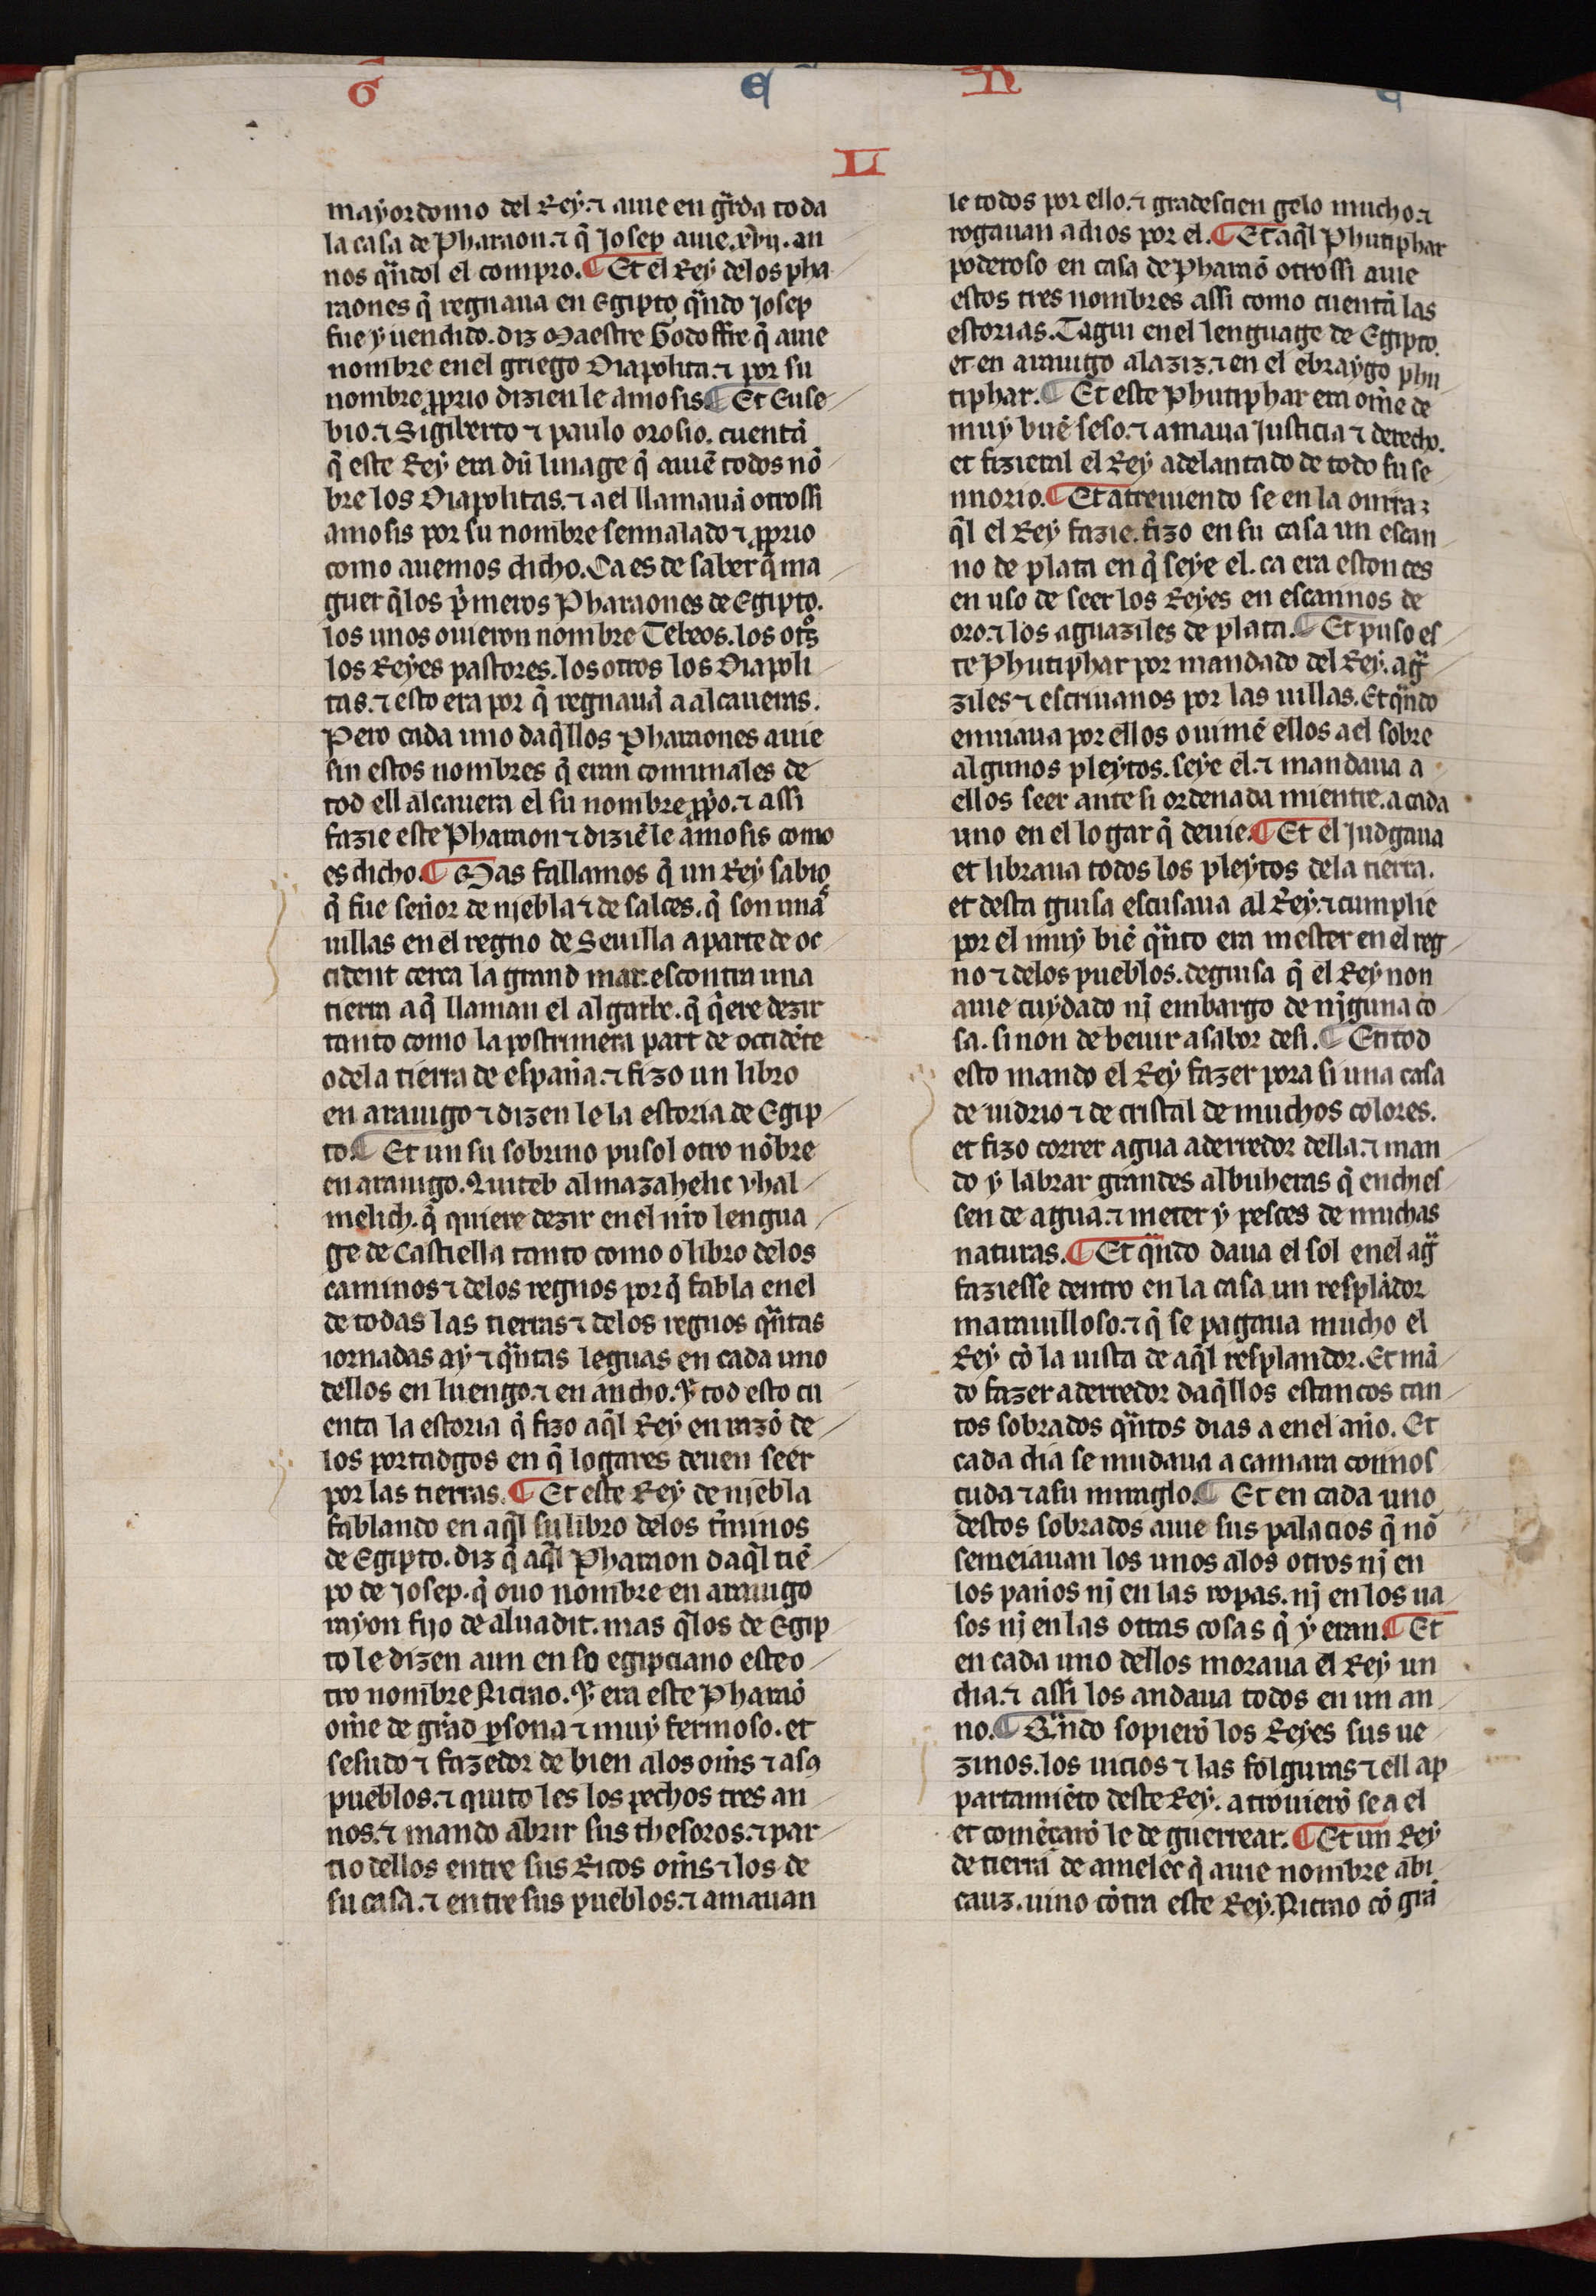 G̃ E N̄ E
LI
mayordomo del Rey. ⁊ auie en gͣrda toda
la casa de Pharaon. ⁊ q̃ Josep auie .xvij. an
nos qͣndol el compro. ¶ Et el Rey delos pha
raones q̃ regnaua en Egipto qͣndo Josep
fue y uendido. diz Maestre Godoffre q̃ auie
nombre en el griego Diapolita. ⁊ por su
nombre ꝓprio dizien le amosis ¶ Et Euse
bio. ⁊ Sigiberto ⁊ paulo orosio. cuentã
q̃ este Rey era dũ linage q̃ auiẽ todos nõ
bre los Diapolitas. ⁊ a el llamauã otrossi
amosis por su nombre sennalado ⁊ ꝓprio
como auemos dicho. Ca es de saber q̃ ma
guer q̃ los pͥmeros Pharaones de Egipto.
los unos ouieron nombre Tebeos. los otͦs
los Reyes pastores. los otros los Diapoli
tas. ⁊ esto era por q̃ regnauã a alcaueras.
Pero cada uno daq̃llos Pharaones auie
sin estos nombres q̃ eran comunales de
tod ell alcauera el su nombre ꝓpo. ⁊ assi
fazie este Pharaon ⁊ diziẽ le amosis como
es dicho. ¶ Mas fallamos q̃ un Rey sabio
q̃ fue señor de niebla ⁊ de salces. q̃ son unas
uillas en el regno de Seuilla a parte de oc
cident cerca la grand mar. escontra una
tierra aq̃ llaman el algarbe. q̃ q̃ere dezir
tanto como la postrimera part de occidẽte
o dela tierra de españa. ⁊ fizo un libro
en arauigo ⁊ dizen le la estoria de Egip
to. ¶ Et un su sobrino pusol otro nõbre
en arauigo. Quiteb almazahelic vhal
melich. q̃ quiere dezir en el nr̃o lengua
ge de Castiella tanto como o libro delos
caminos ⁊ delos regnos por q̃ fabla en el
de todas las tierras ⁊ delos regnos qͣntas
iornadas ay ⁊ qͣntas leguas en cada uno
dellos en luengo. ⁊ en ancho. Y tod esto cu
enta la estoria q̃ fizo aq̃l Rey en razõ de
los portadgos en q̃ logares deuen seer
por las tierras. ¶ Et este Rey de niebla
fablando en aq̃l su libro delos t̃minos
de Egipto. diz q̃ aq̃l Pharaon daq̃l tiẽ
po de Josep. q̃ ouo nombre en arauigo
rayon fijo de aluadit. mas q̃ los de Egip
to le dizen aun en so egipciano este o
tro nombre Nicrao. Y era este Pharaõ
om̃e de grãd ꝑsona ⁊ muy fermoso. et
sesudo ⁊ fazedor de bien alos om̃s ⁊ a sꝯ
pueblos. ⁊ quito les los pechos tres an
nos. ⁊ mando abrir sus thesoros. ⁊ par
tio dellos entre sus Ricos om̃s ⁊ los de
su casa. ⁊ entre sus pueblos. ⁊ amauan
le todos por ello. ⁊ gradescien gelo mucho. ⁊
rogauan a dios por el. ¶ Et aq̃l Phutiphar
poderoso en casa de Pharaõ otrossi auie
estos tres nombres assi como cuentã las
estorias. Tagui en el lenguage de Egipto.
et en arauigo alaziz. ⁊ en el ebraygo phu
tiphar. ¶ Et este Phutiphar era om̃e de
muy buẽ seso. ⁊ amaua Justicia ⁊ derecho.
et fizieral el Rey adelantado de todo su se
nnorio. ¶ Et atreuiendo se en la onrra ꝫ
q̃l el Rey fazie. fizo en su casa un escan
no de plata en q̃ seye el. ca era estonces
en uso de seer los Reyes en escannos de
oro. ⁊ los aguaziles de plata. ¶ Et puso es
te Phutiphar por mandado del Rey. agͣ
ziles ⁊ escriuanos por las uillas. Et qͣndo
enuiaua por ellos o uiniẽ ellos a el sobre
algunos pleytos. seye el. ⁊ mandaua a
ellos seer ante si ordenada mientre. a cada
uno en el logar q̃ deuie. ¶ Et el Judgaua
et libraua todos los pleytos dela tierra.
et desta guisa escusaua al Rey. ⁊ cumplie
por el muy biẽ qͣnto era mester en el reg
no ⁊ delos pueblos. de guisa q̃ el Rey non
auie cuydado nj embargo de njguna co
sa. si non de beuir a sabor desi. ¶ En tod
esto mando el Rey fazer pora si una casa
de uidrio ⁊ de cristal de muchos colores.
et fizo correr agua aderredor della. ⁊ man
do y labrar grandes albuheras q̃ enchies
sen de agua. ⁊ meter y pesces de muchas
naturas. ¶ Et qͣndo daua el sol en el agͣ
faziesse dentro en la casa un resplãdor
marauilloso. ⁊ q̃ se pagaua mucho el
Rey cõ la uista de aq̃l resplandor. Et mã
do fazer aderredor daq̃llos estancos tan
tos sobrados qͣntos dias a en el año. Et
cada dia se mudaua a camara connos
çuda ⁊ a su miraglo. ¶ Et en cada uno
destos sobrados auie sus palacios q̃ nõ
semeiauan los unos alos otros nj en
los paños nj en las ropas. nj en los ua
sos nj en las otras cosas q̃ y eran. ¶ Et
en cada uno dellos moraua el Rey un
dia. ⁊ assi los andaua todos en un an
no. ¶ Qͣndo sopierõ los Reyes sus ue
zinos. los uicios ⁊ las folguras ⁊ ell ap
partamiẽto deste Rey. atrouierõ se a el
et comẽçarõ le de guerrear. ¶ Et un Rey
de tierra de amelec q̃ auie nombre abi
cauz. uino cõtra este Rey. Nicrao cõ grã